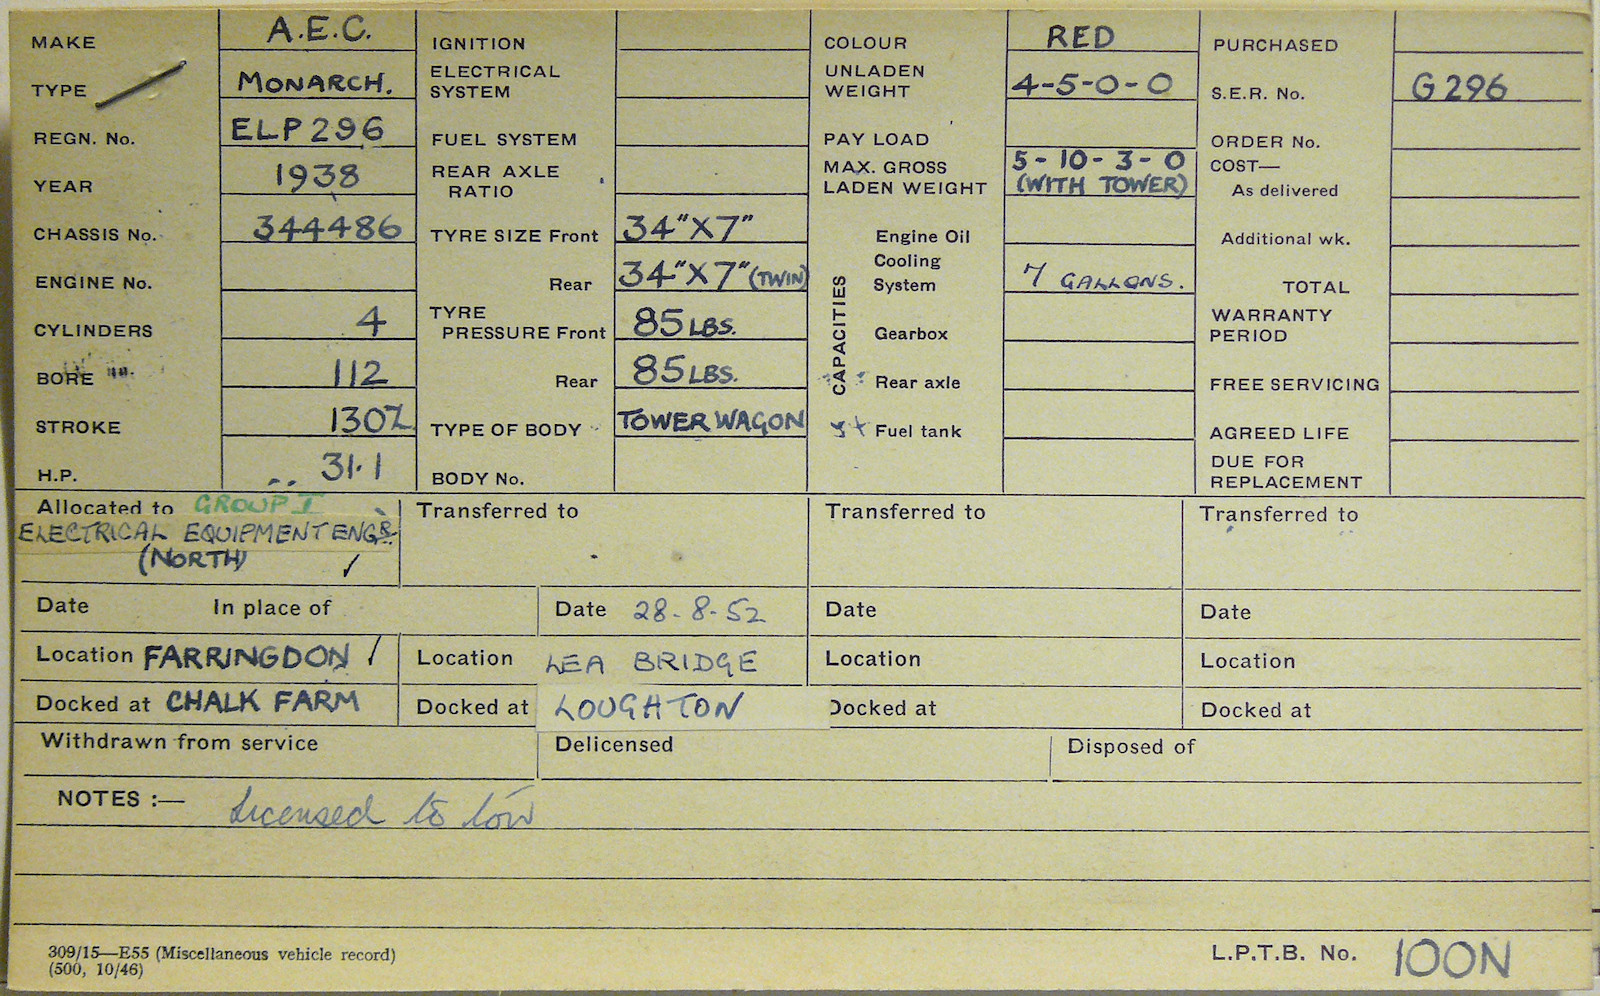 MAKE A.E.C.
TYPE MONARCH.
REGN. No. ELP 296
YEAR 1938
CHASSIS No. 344486
ENGINE No.
CYLINDERS 4
BORE 112
STROKE 130
H.P. 31·1
IGNITION
ELECTRICAL
SYSTEM
FUEL SYSTEM
REAR AXLE
RATIO
TYRE SIZE Front 34"X7"
Rear 34"X7" (TWIN)
TYRE
PRESSURE Front 85 LBS.
Rear 85 LBS.
TYPE OF BODY TOWER WAGON
BODY No.
COLOUR RED
UNLADEN
WEIGHT 4-5-0-0
PAY LOAD
MAX. GROSS 5-10-3-0
LADEN WEIGHT (WITH TOWER)
CAPACITIES
Engine Oil
Cooling
System 7 GALLONS.
Gearbox
Rear axle
Fuel tank
PURCHASED
S.E.R. No. G 296
ORDER No.
COST—
As delivered
Additional wk.
TOTAL
WARRANTY
PERIOD
FREE SERVICING
AGREED LIFE
DUE FOR
REPLACEMENT
Allocated to GROUP I
ELECTRICAL EQUIPMENT ENGR.
(NORTH) ✓
Transferred to
Transferred to
Transferred to
Date In place of
Date 28-8-52
Date
Date
Location FARRINGDON ✓
Location LEA BRIDGE
Location
Location
Docked at CHALK FARM
Docked at LOUGHTON
Docked at
Docked at
Withdrawn from service
Delicensed
Disposed of
NOTES :— Licensed to tow
309/15—E55 (Miscellaneous vehicle record)
(500, 10/46)
L.P.T.B. No. 100N